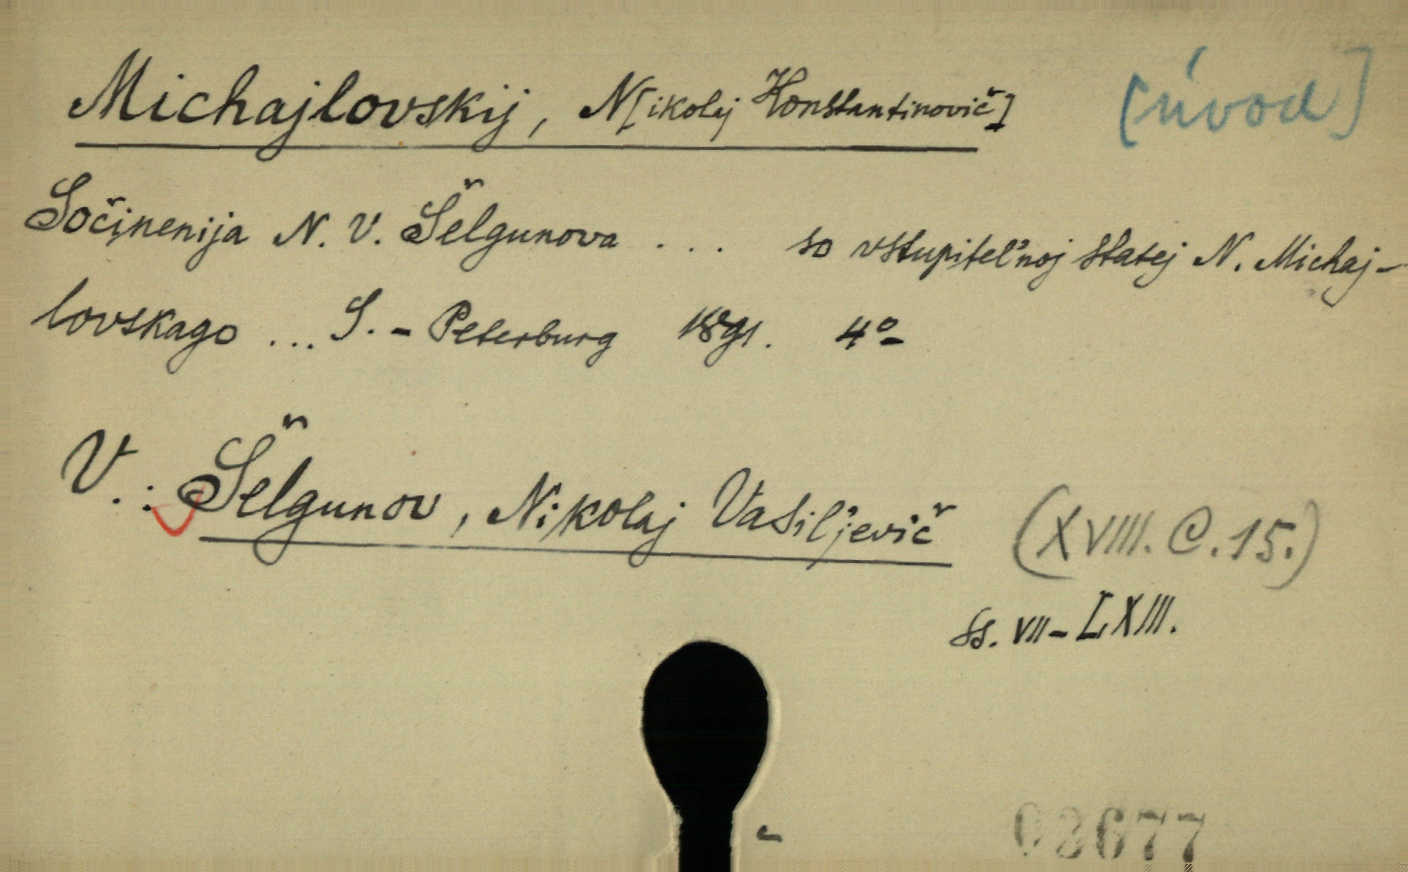 Michajlovskij, N[ikolaj Konstantinovič] [úvod]
Sočinenija N. V. Šelgunova ... so vstupiteľnoj statej N. Michaj-
lovskago ... S.-Peterburg 1891. 4°
V.: Šelgunov, Nikolaj Vasiľjevič (XVIII. C. 15.)
ss. VII-LXIII.
03677